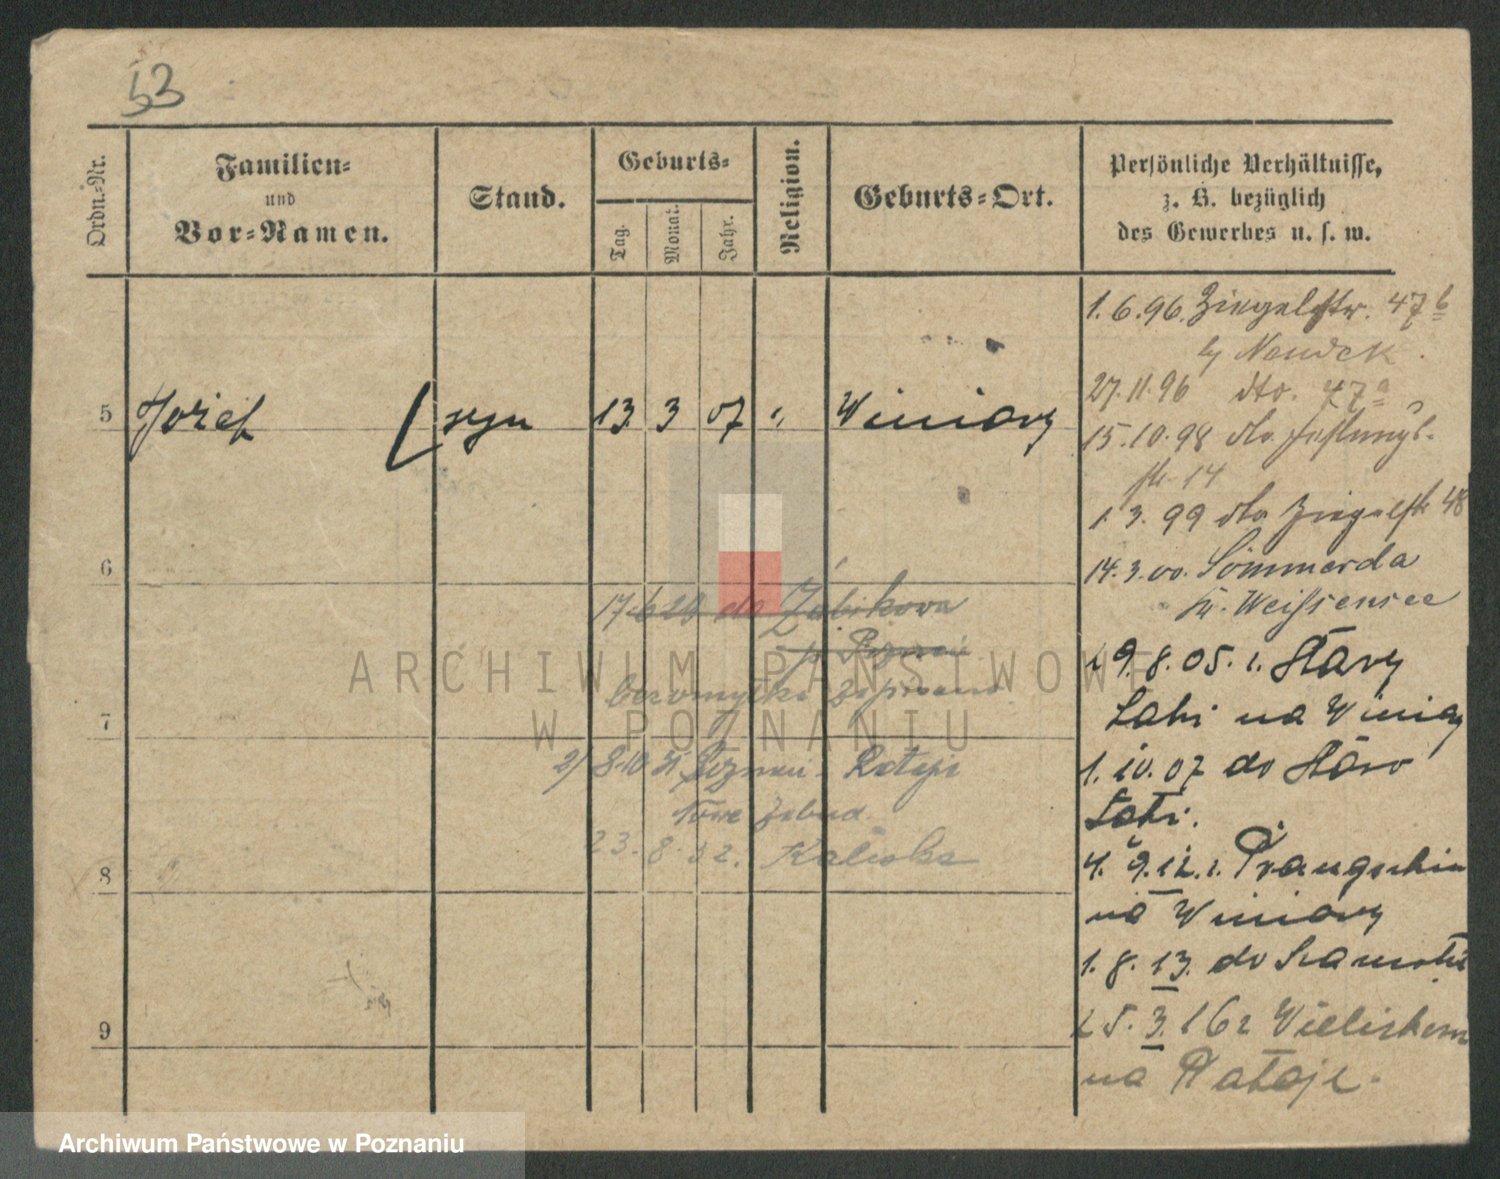 53
Ordn.-Nr.
Familien-
und
Vor-Namen.
Stand.
Geburts-
Tag.
Monat.
Jahr.
Religion.
Geburts-Ort.
Persönliche Verhältnisse,
z. B. bezüglich
des Gewerbes u. s. w.
5 Józef syn 13. 3 07 Winiary
6
7
8
9
17.6.26 do Żabikowa
p. Poznań
zapisano
2) 8.10.31 Poznań - Rataje
23. 8. 32. Kaliska
1.6.96. Ziegelstr. 47b
27.11.96 dto. 47a
15.10.98 dto. Festungs-
str. 14
1. 3. 99 dto Ziegelstr 48
14.3.00. Sömmerda
Kr. Weißensee
19.8.05. z. Stary
na Winiary
1.10.07 do Staro
4. 9.12. z
na Winiary
1.8.13. do
15.3.16 z
na Rataje.
ARCHIWUM PAŃSTWOWE
W POZNANIU
Archiwum Państwowe w Poznaniu